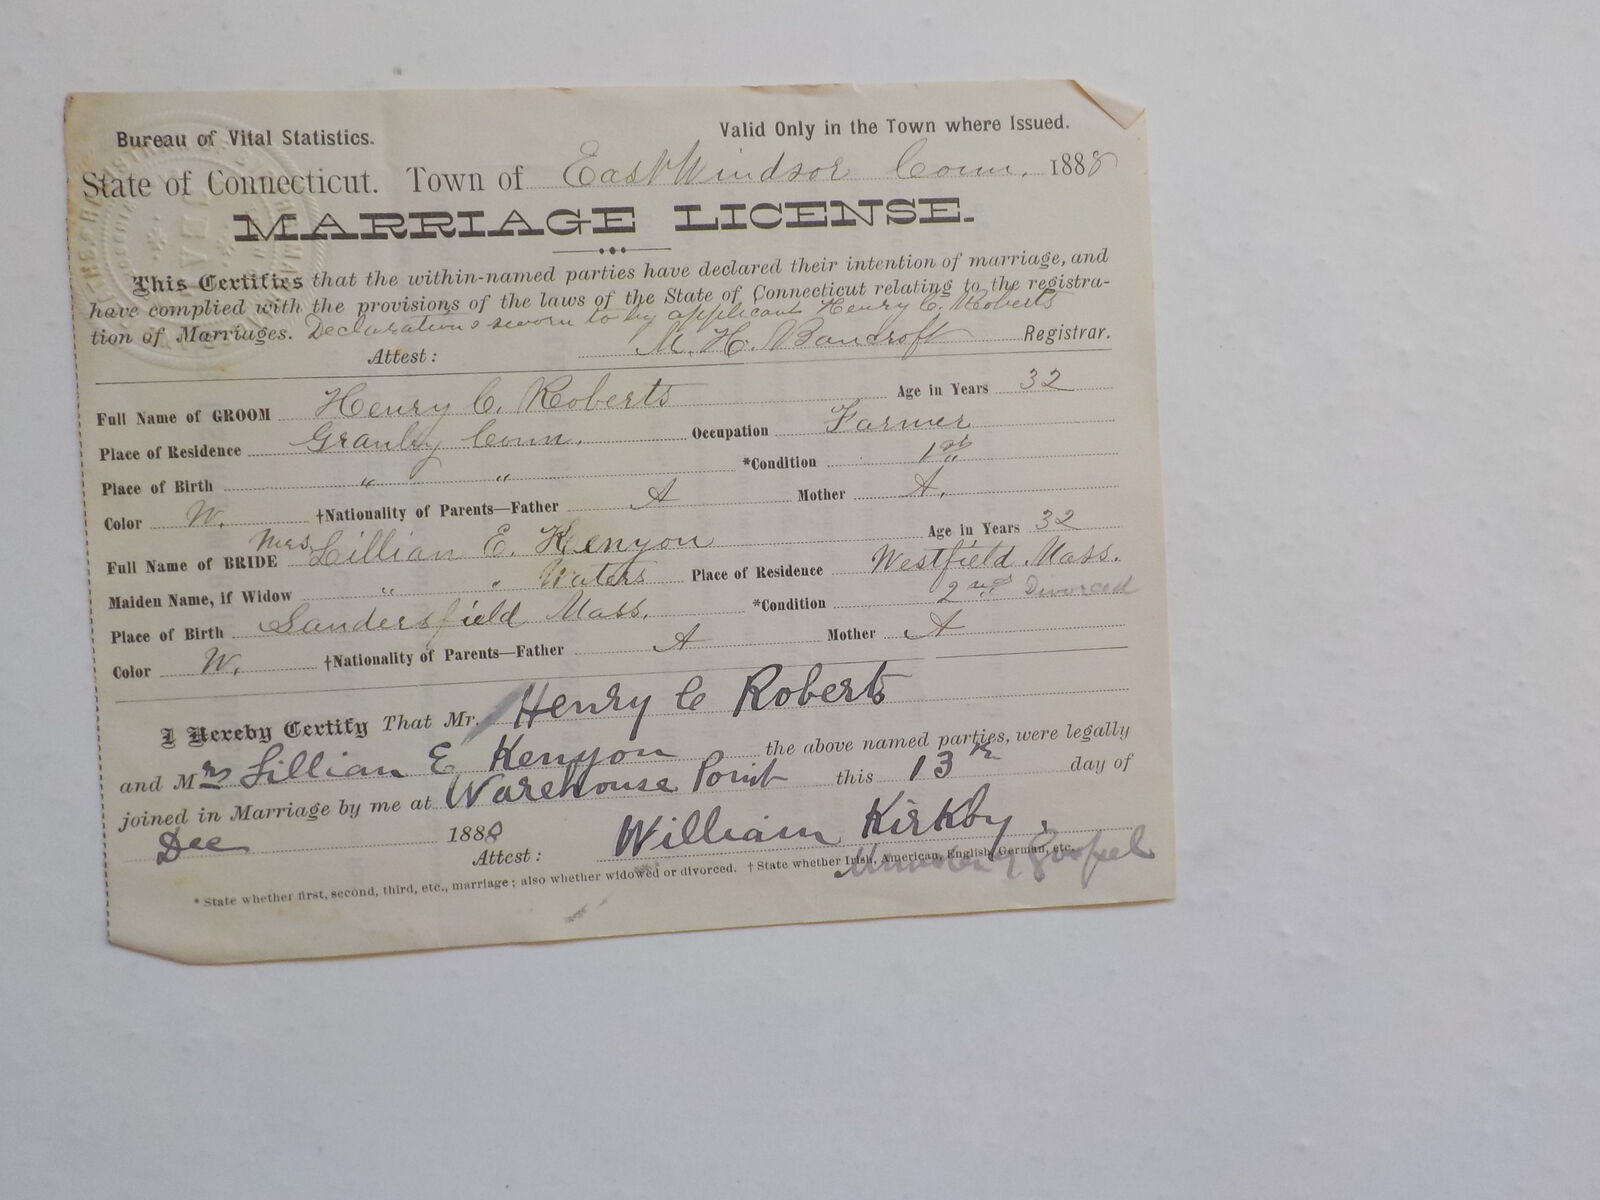 Bureau of Vital Statistics. Valid Only in the Town where Issued.
State of Connecticut. Town of East Windsor Conn. 1888
MARRIAGE LICENSE.
This Certifies that the within-named parties have declared their intention of marriage, and
have complied with the provisions of the laws of the State of Connecticut relating to the registra-
tion of Marriages. Declarations sworn to by applicant Henry C. Roberts
Attest: M. H. Bancroft Registrar.
Full Name of GROOM Henry C. Roberts Age in Years 32
Place of Residence Granby Conn. Occupation Farmer
Place of Birth " " *Condition 1st
Color W. †Nationality of Parents—Father A Mother A.
Full Name of BRIDE Mrs Lillian E. Kenyon Age in Years 32
Maiden Name, if Widow " " Waters Place of Residence Westfield Mass.
Place of Birth Sandersfield Mass. *Condition 2nd Divorced
Color W. †Nationality of Parents—Father A Mother A
I Hereby Certify That Mr. Henry C Roberts
and Mrs Lillian E Kenyon the above named parties, were legally
joined in Marriage by me at Warehouse Point this 13th day of
Dec 1888 Attest: William Kirkby.
Minister of Gospel
* State whether first, second, third, etc., marriage; also whether widowed or divorced. † State whether Irish, American, English, German, etc.